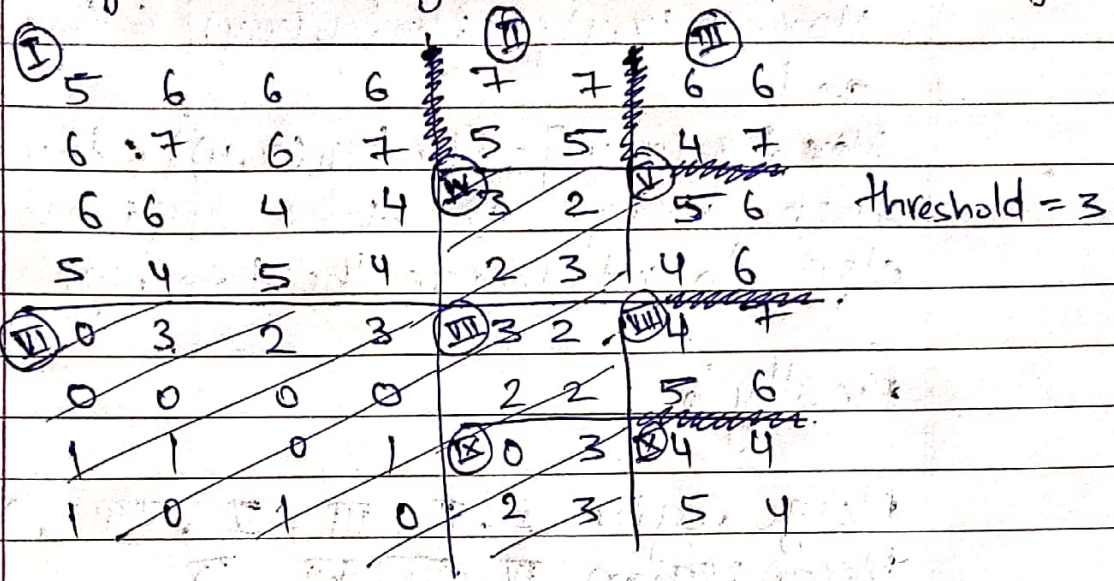 I II III
5 6 6 6 7 7 6 6
6 7 6 7 5 5 4 7
6 6 4 4 IV 3 2 V 5 6 threshold = 3
5 4 5 4 2 3 4 6
VI 0 3 2 3 VII 3 2 VIII 4 7
0 0 0 0 2 2 5 6
1 1 0 1 IX 0 3 X 4 4
1 0 1 0 2 3 5 4